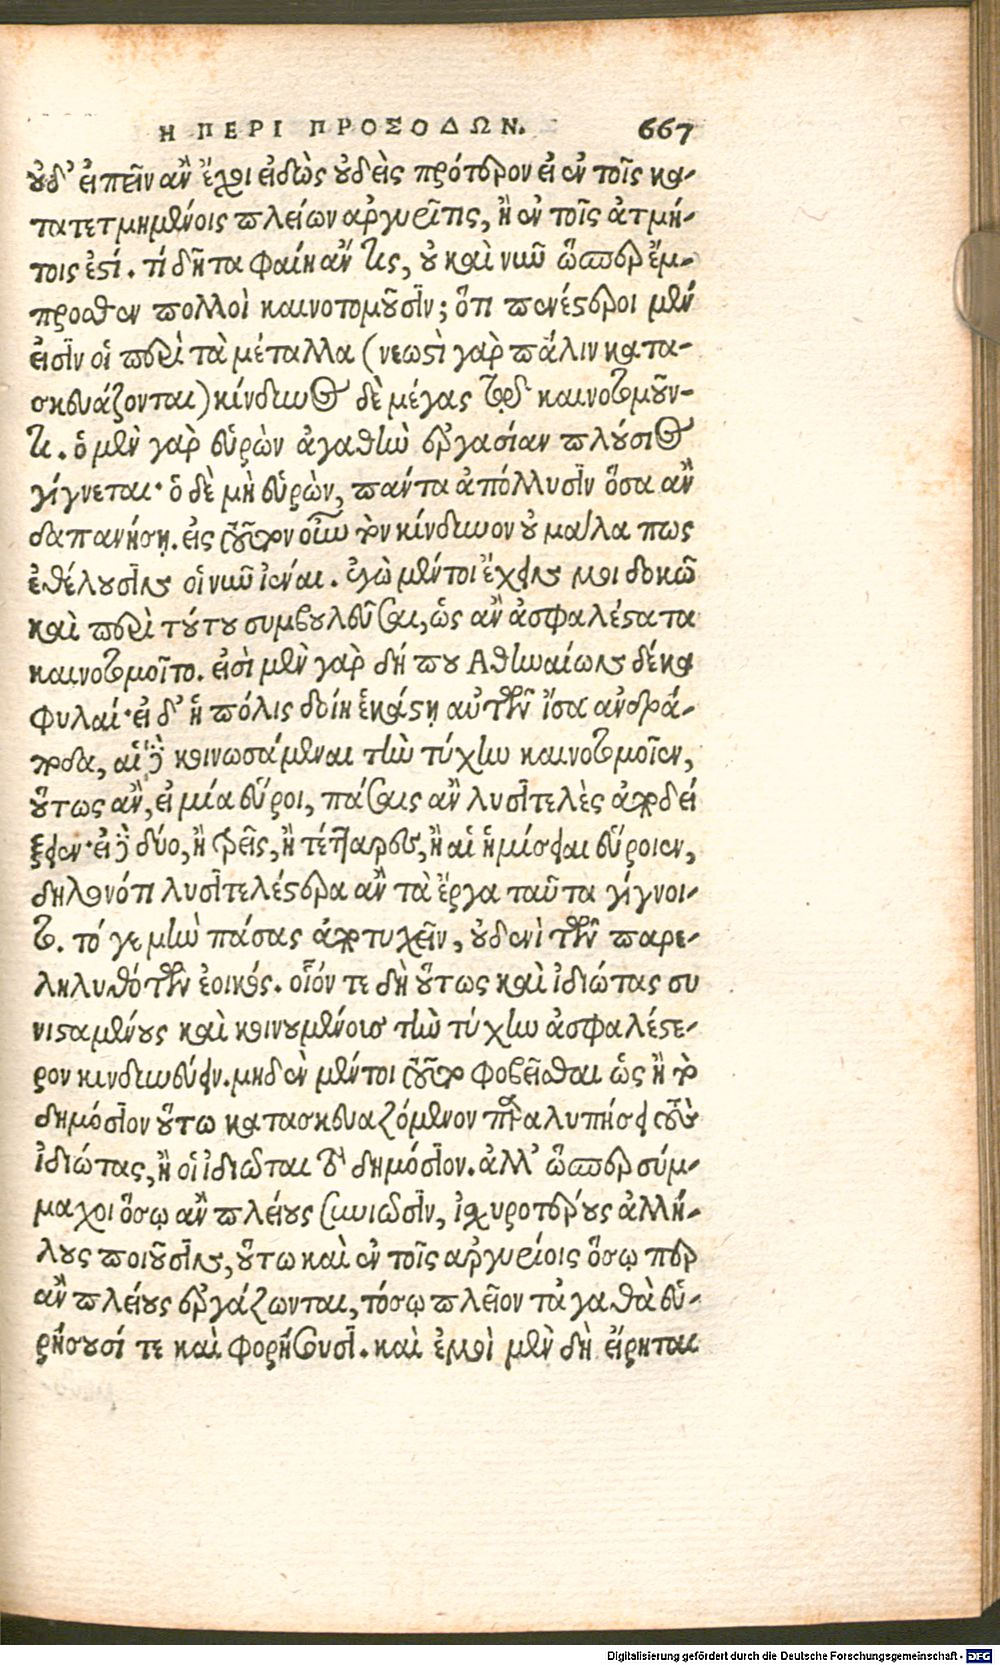 Η ΠΕΡΙ ΠΡΟΣΟΔΩΝ. 667
οὐδ' εἰπεῖν ἂν ἔχοι εἰδὼς οὐδεὶς πρότερον εἰ ἐν τοῖς κα-
τατετμημένοις πλείων ἀργυρῖτις, ἢ ἐν τοῖς ἀτμή-
τοις ἐστί. τί δῆτα φαίη ἄν τις, οὐ καὶ νῦν ὥσπερ ἔμ-
προσθεν πολλοὶ καινοτομοῦσιν; ὅτι πενέστεροι μὲν
εἰσὶν οἱ περὶ τὰ μέταλλα (νεωστὶ γὰρ πάλιν κατα-
σκευάζονται) κίνδυνος δὲ μέγας τῷ καινοτομοῦν-
τι. ὁ μὲν γὰρ εὑρὼν ἀγαθὴν ἐργασίαν πλούσιος
γίγνεται· ὁ δὲ μὴ εὑρὼν, πάντα ἀπόλλυσιν ὅσα ἂν
δαπανήσῃ. εἰς τοῦτον οὖν τὸν κίνδυνον οὐ μάλα πως
ἐθέλουσιν οἱ νῦν ἰέναι. ἐγὼ μέντοι ἔχειν μοι δοκῶ
καὶ περὶ τούτου συμβουλεῦσαι, ὡς ἂν ἀσφαλέστατα
καινοτομοῖτο. εἰσὶ μὲν γὰρ δή που Ἀθηναίων δέκα
φυλαί· εἰ δ' ἡ πόλις δοίη ἑκάστῃ αὐτῶν ἴσα ἀνδρά-
ποδα, αἱ δὲ κοινωσάμεναι τὴν τύχην καινοτομοῖεν,
οὕτως ἂν, εἰ μία εὕροι, πάσαις ἂν λυσιτελὲς ἀποδεί
ξειεν· εἰ δὲ δύο, ἢ τρεῖς, ἢ τέτταρες, ἢ αἱ ἡμίσειαι εὕροιεν,
δηλονότι λυσιτελέστερα ἂν τὰ ἔργα ταῦτα γίγνοι-
το. τό γε μὴν πάσας ἀποτυχεῖν, οὐδενὶ τῶν παρε-
ληλυθότων ἐοικός. οἷόν τε δὴ οὕτως καὶ ἰδιώτας συ
νισταμένους καὶ κοινουμένους τὴν τύχην ἀσφαλέστε-
ρον κινδυνεύειν. μηδὲν μέντοι τοῦτο φοβεῖσθαι ὡς ἢ τὸ
δημόσιον οὕτω κατασκευαζόμενον παραλυπήσει τοὺς
ἰδιώτας, ἢ οἱ ἰδιῶται τὸ δημόσιον. ἀλλ' ὥσπερ σύμ-
μαχοι ὅσῳ ἂν πλείους συνιῶσιν, ἰσχυροτέρους ἀλλή-
λους ποιοῦσιν, οὕτω καὶ ἐν τοῖς ἀργυρίοις ὅσῳ περ
ἂν πλείους ἐργάζωνται, τόσῳ πλεῖον τἀγαθὰ εὑ-
ρήσουσί τε καὶ φορήσουσι. καὶ ἐμοὶ μὲν δὴ εἴρηται
Digitalisierung gefördert durch die Deutsche Forschungsgemeinschaft - DFG